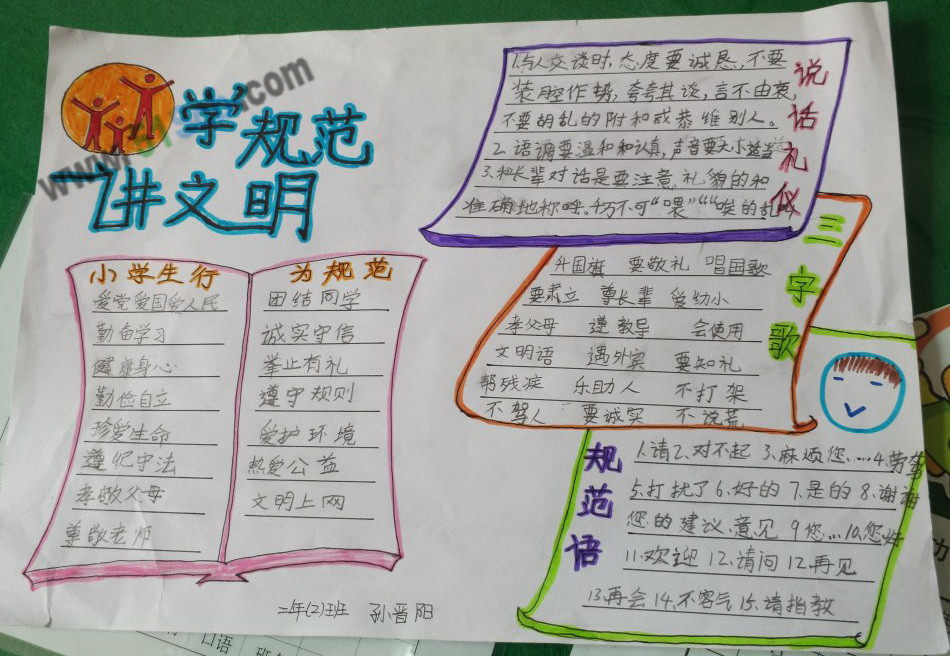 学规范
讲文明
小学生行为规范
爱党爱国爱人民
勤奋学习
健康身心
勤俭自立
珍爱生命
遵纪守法
孝敬父母
尊敬老师
团结同学
诚实守信
举止有礼
遵守规则
爱护环境
热爱公益
文明上网
二年(2)班 孙晋阳
说话礼仪
1.与人交谈时,态度要诚恳,不要
装腔作势,夸夸其谈,言不由衷,
不要胡乱的附和或恭维别人。
2.语调要温和和认真,声音要大小适当
3.和长辈对话是要注意,礼貌的和
准确地称呼。千万不可“喂”““唉的乱
三字歌
升国旗 要敬礼 唱国歌
要肃立 尊长辈 爱幼小
孝父母 遵教导 会使用
文明语 遇外宾 要知礼
帮残疾 乐助人 不打架
不骂人 要诚实 不说荒
规范语
1.请2.对不起 3.麻烦您.....4.劳驾
5.打扰了6.好的 7.是的 8.谢谢
您的建议、意见 9您...10.您好
11.欢迎 12.请问 12.再见
13.再会 14.不客气 15.请指教
口语
.com
www.